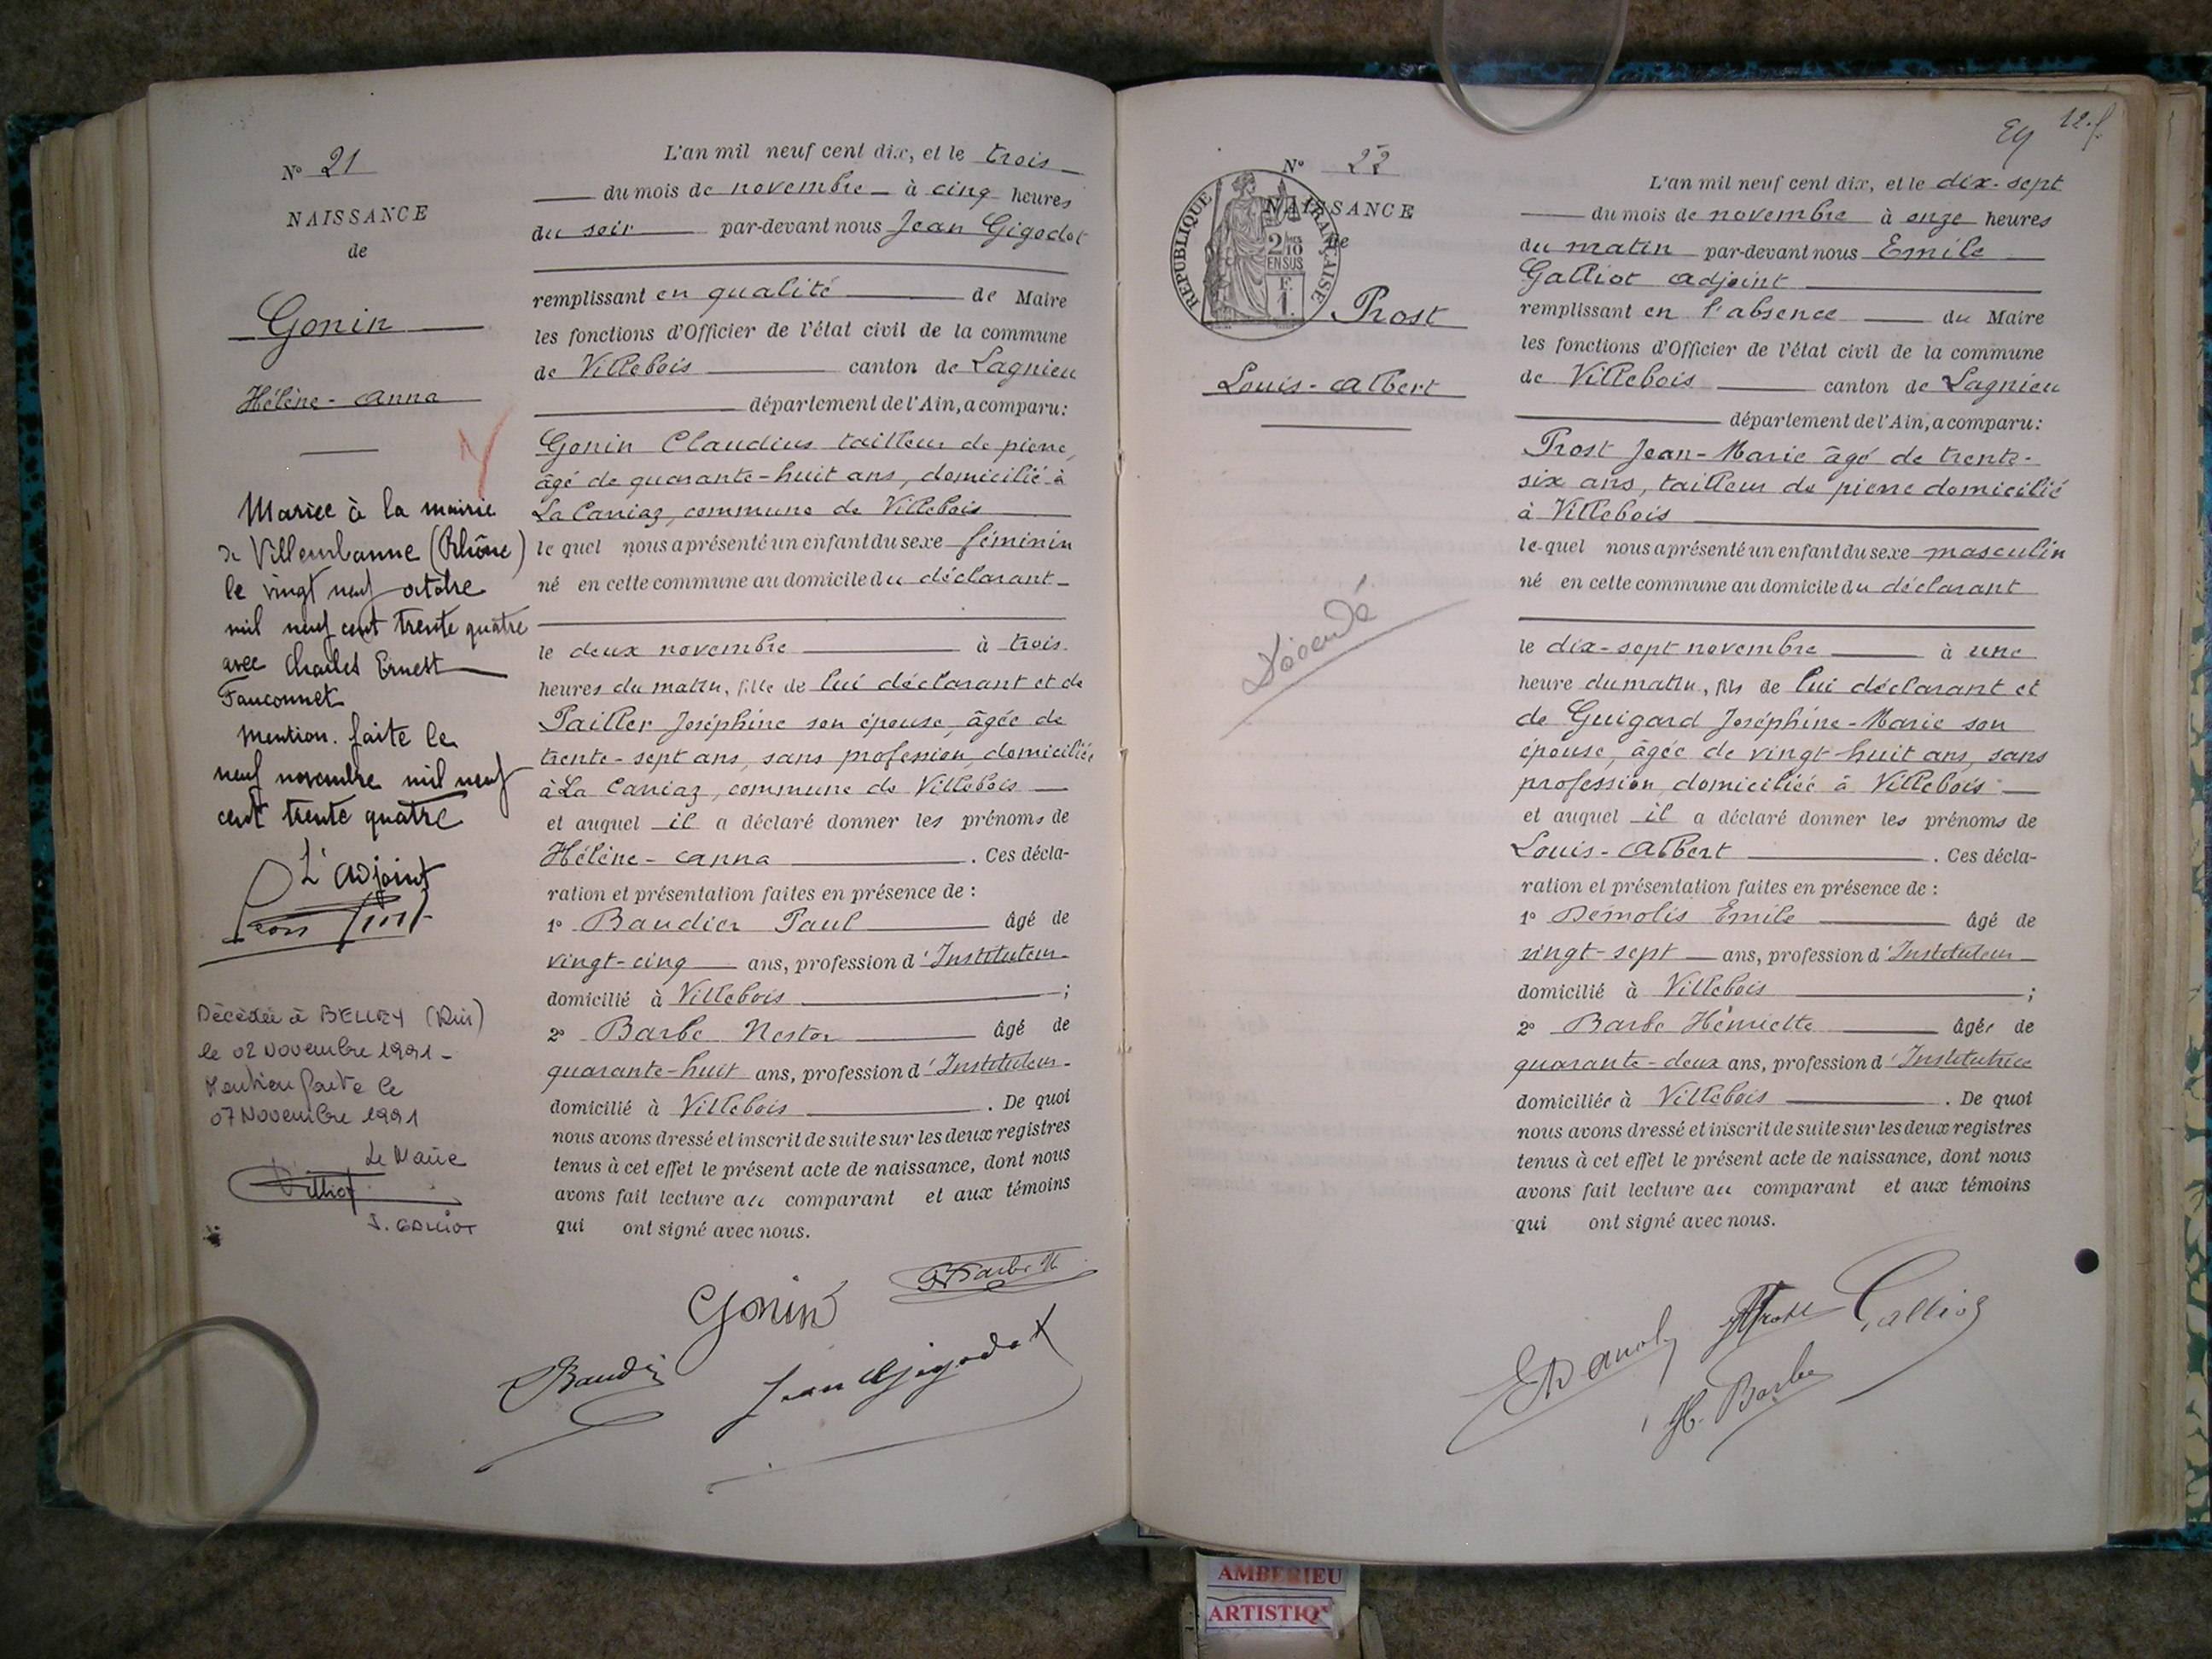 N° 21
NAISSANCE
de
Gonin
Hélène-Anna
Mariée à la mairie
de Villeurbanne (Rhône)
le vingt neuf octobre
mil neuf cent trente quatre
avec Charles Ernest
Fauconnet
Mention faite le
neuf novembre mil neuf
cent trente quatre
L'adjoint
Décédée à BELLEY (Ain)
le 02 Novembre 1991-
Mention faite le
07 Novembre 1991
Le Maire
J. GALLIOT
L'an mil neuf cent dix, et le trois
du mois de novembre à cinq heures
du soir par-devant nous Jean Gigodot
remplissant en qualité de Maire
les fonctions d'Officier de l'état civil de la commune
de Villebois canton de Lagnieu
département de l'Ain, a comparu:
Gonin Claudius tailleur de pierre,
âgé de quarante-huit ans, domicilié à
La Carriaz, commune de Villebois
le quel nous a présenté un enfant du sexe féminin
né en cette commune au domicile du déclarant
le deux novembre à trois
heures du matin, fille de lui déclarant et de
Pailler Joséphine son épouse, âgée de
trente-sept ans, sans profession, domiciliée
à La Carriaz, commune de Villebois
et auquel il a déclaré donner les prénoms de
Hélène-Anna . Ces décla-
ration et présentation faites en présence de :
1° Baudier Paul âgé de
vingt-cinq ans, profession d'Instituteur
domicilié à Villebois ;
2° Barbe Nestor âgé de
quarante-huit ans, profession d'Instituteur
domicilié à Villebois . De quoi
nous avons dressé et inscrit de suite sur les deux registres
tenus à cet effet le présent acte de naissance, dont nous
avons fait lecture au comparant et aux témoins
qui ont signé avec nous.
Gonin
Jean Gigodot
12. f.
N° 22
NAISSANCE
de
RÉPUBLIQUE FRANÇAISE
2/10
EN SUS
F.
1.
Prost
Louis-Albert
Décédé
L'an mil neuf cent dix, et le dix-sept
du mois de novembre à onze heures
du matin par-devant nous Emile
Galliot adjoint
remplissant en l'absence du Maire
les fonctions d'Officier de l'état civil de la commune
de Villebois canton de Lagnieu
département de l'Ain, a comparu:
Prost Jean-Marie âgé de trente-
six ans, tailleur de pierre domicilié
à Villebois
le quel nous a présenté un enfant du sexe masculin
né en cette commune au domicile du déclarant
le dix-sept novembre à une
heure du matin, fils de lui déclarant et
de Guigard Joséphine-Marie son
épouse, âgée de vingt-huit ans, sans
profession, domiciliée à Villebois
et auquel il a déclaré donner les prénoms de
Louis-Albert . Ces décla-
ration et présentation faites en présence de :
1° Démolis Emile âgé de
vingt-sept ans, profession d'Instituteur
domicilié à Villebois ;
2° Barbe Henriette âgée de
quarante-deux ans, profession d'Institutrice
domiciliée à Villebois . De quoi
nous avons dressé et inscrit de suite sur les deux registres
tenus à cet effet le présent acte de naissance, dont nous
avons fait lecture au comparant et aux témoins
qui ont signé avec nous.
Galliot
H. Barbe
AMBERIEU
ARTISTIQ